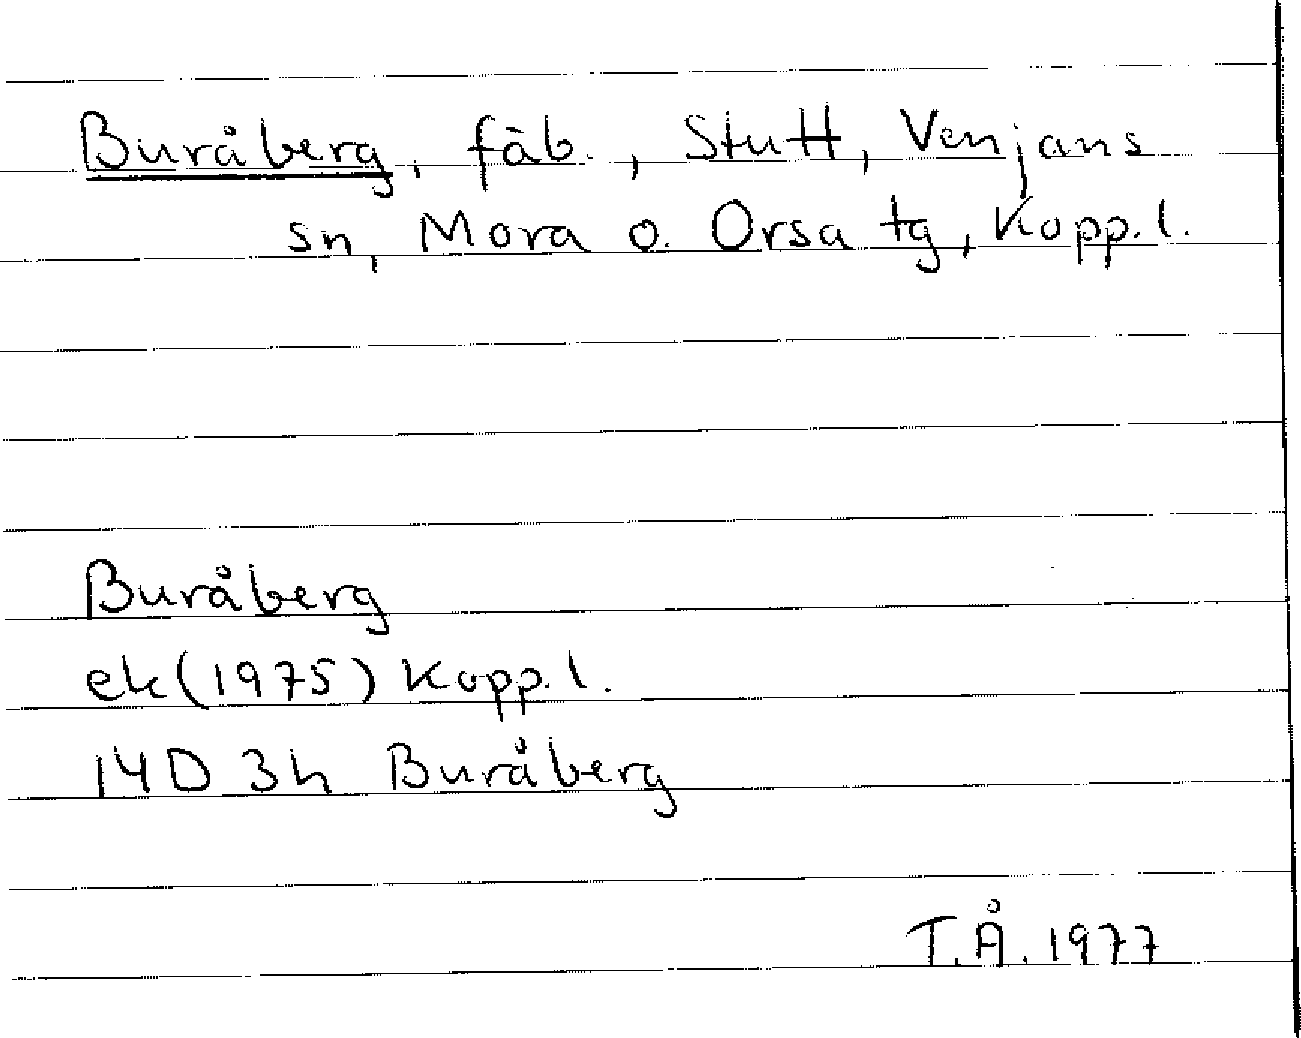 Buråberg, fäb., Stutt, Venjans
sn, Mora o. Orsa tg, Kopp.l.
Buråberg
ek(1975) Kopp.l.
14D 3h Buråberg
T.Å. 1977